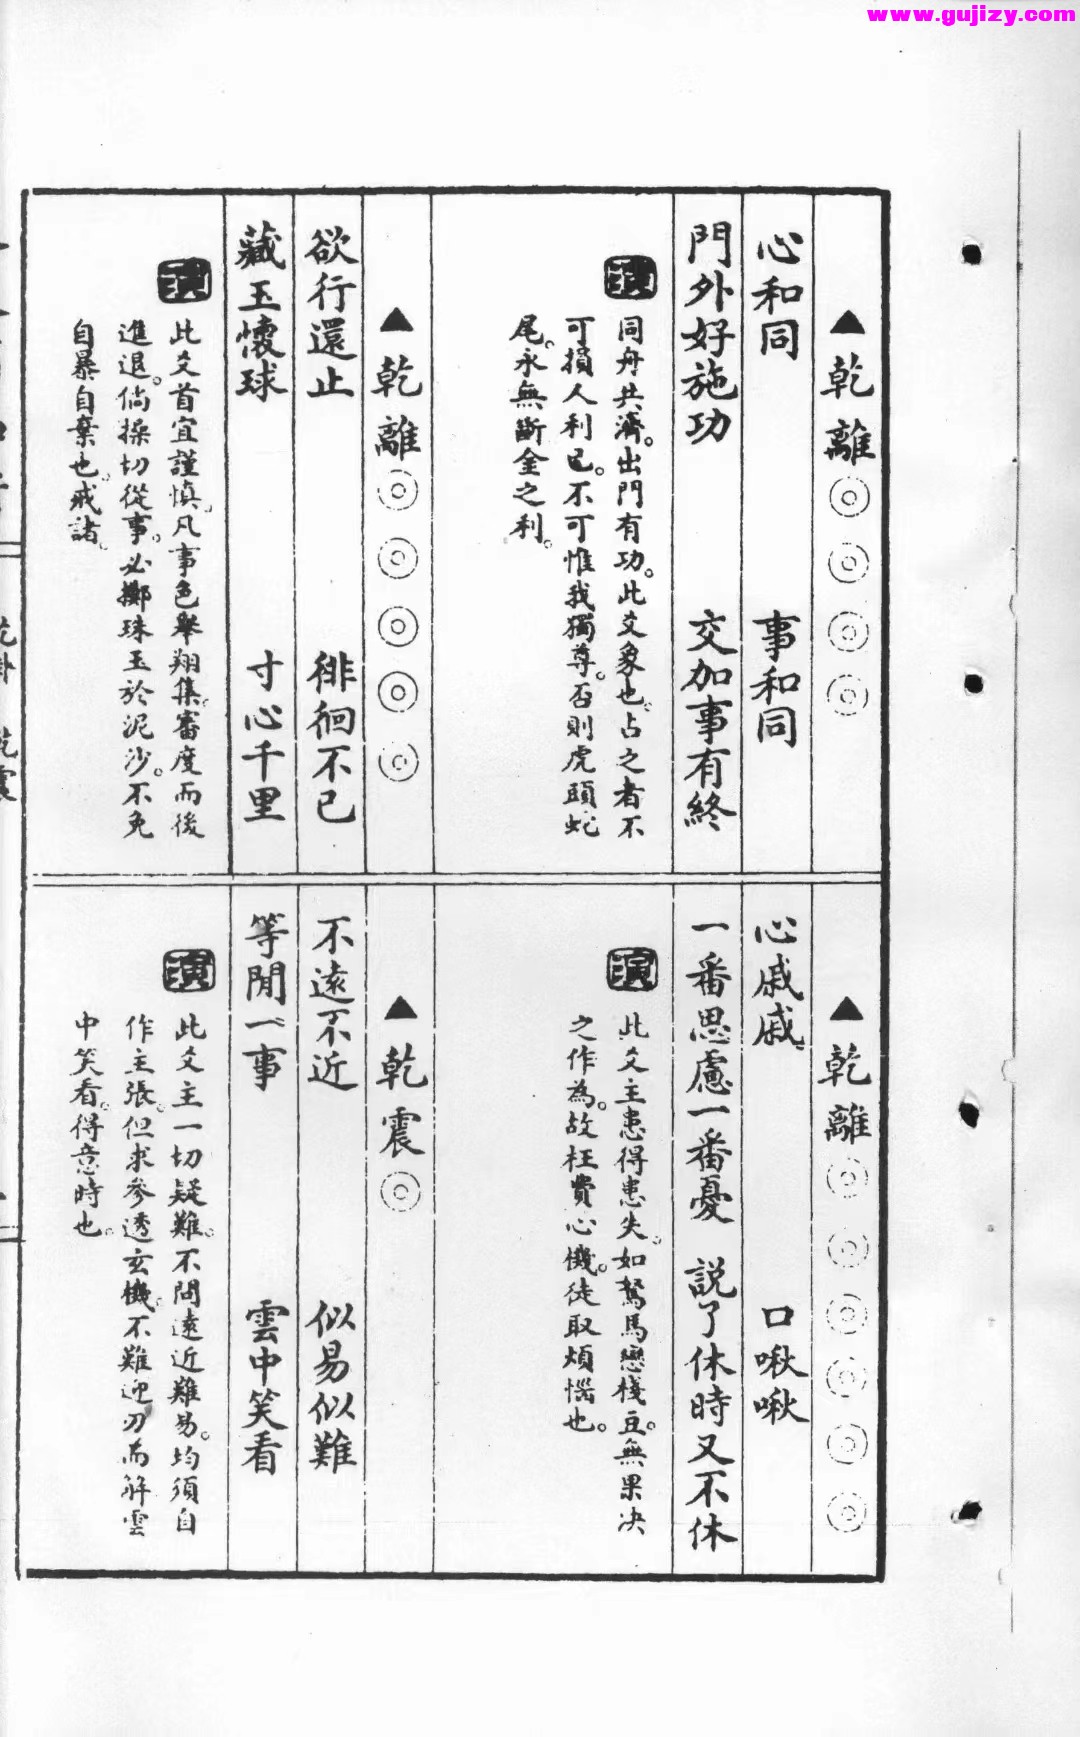 www.gujizy.com
▲乾離◎◎◎◎
心和同 事和同
門外好施功 交加事有終
演
同舟共濟。出門有功。此爻象也。占之者不
可損人利己。不可惟我獨尊。否則虎頭蛇
尾。永無斷金之利。
▲乾離◎◎◎◎◎
欲行還止 徘徊不已
藏玉懷球 寸心千里
演
此爻首宜謹慎。凡事色舉翔集。審度而後
進退。倘操切從事。必擲珠玉於泥沙。不免
自暴自棄也。戒諸。
▲乾離◎◎◎◎◎◎
心戚戚 口啾啾
一番思慮一番憂 説了休時又不休
演
此爻主患得患失。如駑馬戀棧豆。無果决
之作為。故枉費心機。徒取煩惱也。
▲乾震◎
不遠不近 似易似難
等閒一事 雲中笑看
演
此爻主一切疑難。不問遠近難易。均須自
作主張。但求參透玄機。不難迎刃而解。雲
中笑看。得意時也。
卦 乾震